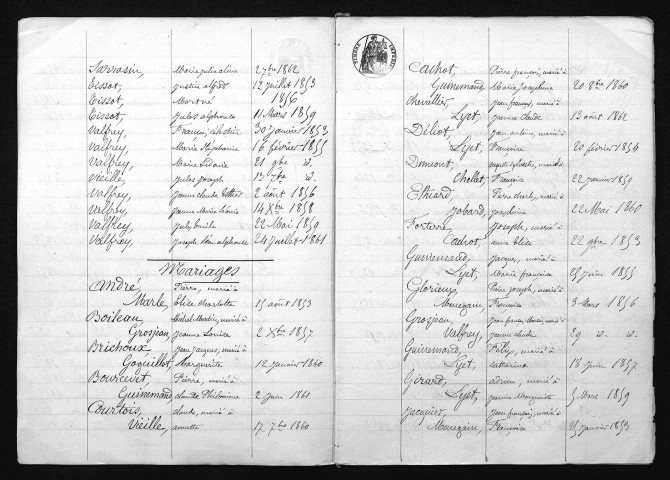 Sarrasin, Marie julie aline 2 7bre 1862
Tissot, justin alfred 12 juillet 1853
Tissot, Mort né 1856
Tissot, jules alphonse 11 Mars 1859
Valfrey, François célestin 30 janvier 1853
Valfrey, Marie Stéphanie 16 février 1855
Valfrey, Marie Sidonie 21 9bre id.
Vieille, jules joseph 13 7bre id.
Valfrey, jeanne claude Esther 2 août 1856
Valfrey, jeanne Marie Léonie 14 Xbre 1858
Valfrey, jules Emile 22 Mai 1859
Valfrey, joseph Léon alphonse 24 juillet 1861
Mariages
André, Pierre, marié à
Marle, Elise charlotte 15 août 1853
Boileau, Michel Martin, marié à
Grosjean, jeanne Louise 2 Xbre 1857
Brichoux, jean jacques, marié à
Goguillot, Marguerite 12 janvier 1860
Bourcevet, Pierre, marié à
Guinnmand, claude Philomène 2 juin 1861
Courtois, claude, marié à
Vieille, annette 17 7bre 1860
TIMBRE IMPERIAL
Cachot, Pierre françois, marié à
Guinemand, Marie Josephine 20 8bre 1860
Chevallier, jean françois, marié à
Lyet, jeanne claude 13 août 1862
Déliot, jean antoine, marié à
Lyet, Françoise 20 février 1854
Dumont, auguste sylvestre, marié à
Chollet, Françoise 22 janvier 1859
Ethiard, Pierre charles, marié à
Jobard, joséphine 22 Mai 1860
Forterre, Joseph, marié à
Cachot, anne Elise 22 9bre 1853
Guinemand, jacques, marié à
Lyet, Marie françoise 25 juin 1855
Glorieux, Pierre joseph, marié à
Mougain, Françoise 3 Mars 1856
Grosjean, jean françois Marie, marié à
Valfrey, jeanne claude 29 id. id.
Guinemand, Félix, marié à
Lyet, catherine 18 juin 1857
Girard, adrien, marié à
Lyet, jeanne Marguerite 5 Mars 1859
Jacquier, jean françois, marié à
Mougain, Françoise 25 janvier 1853